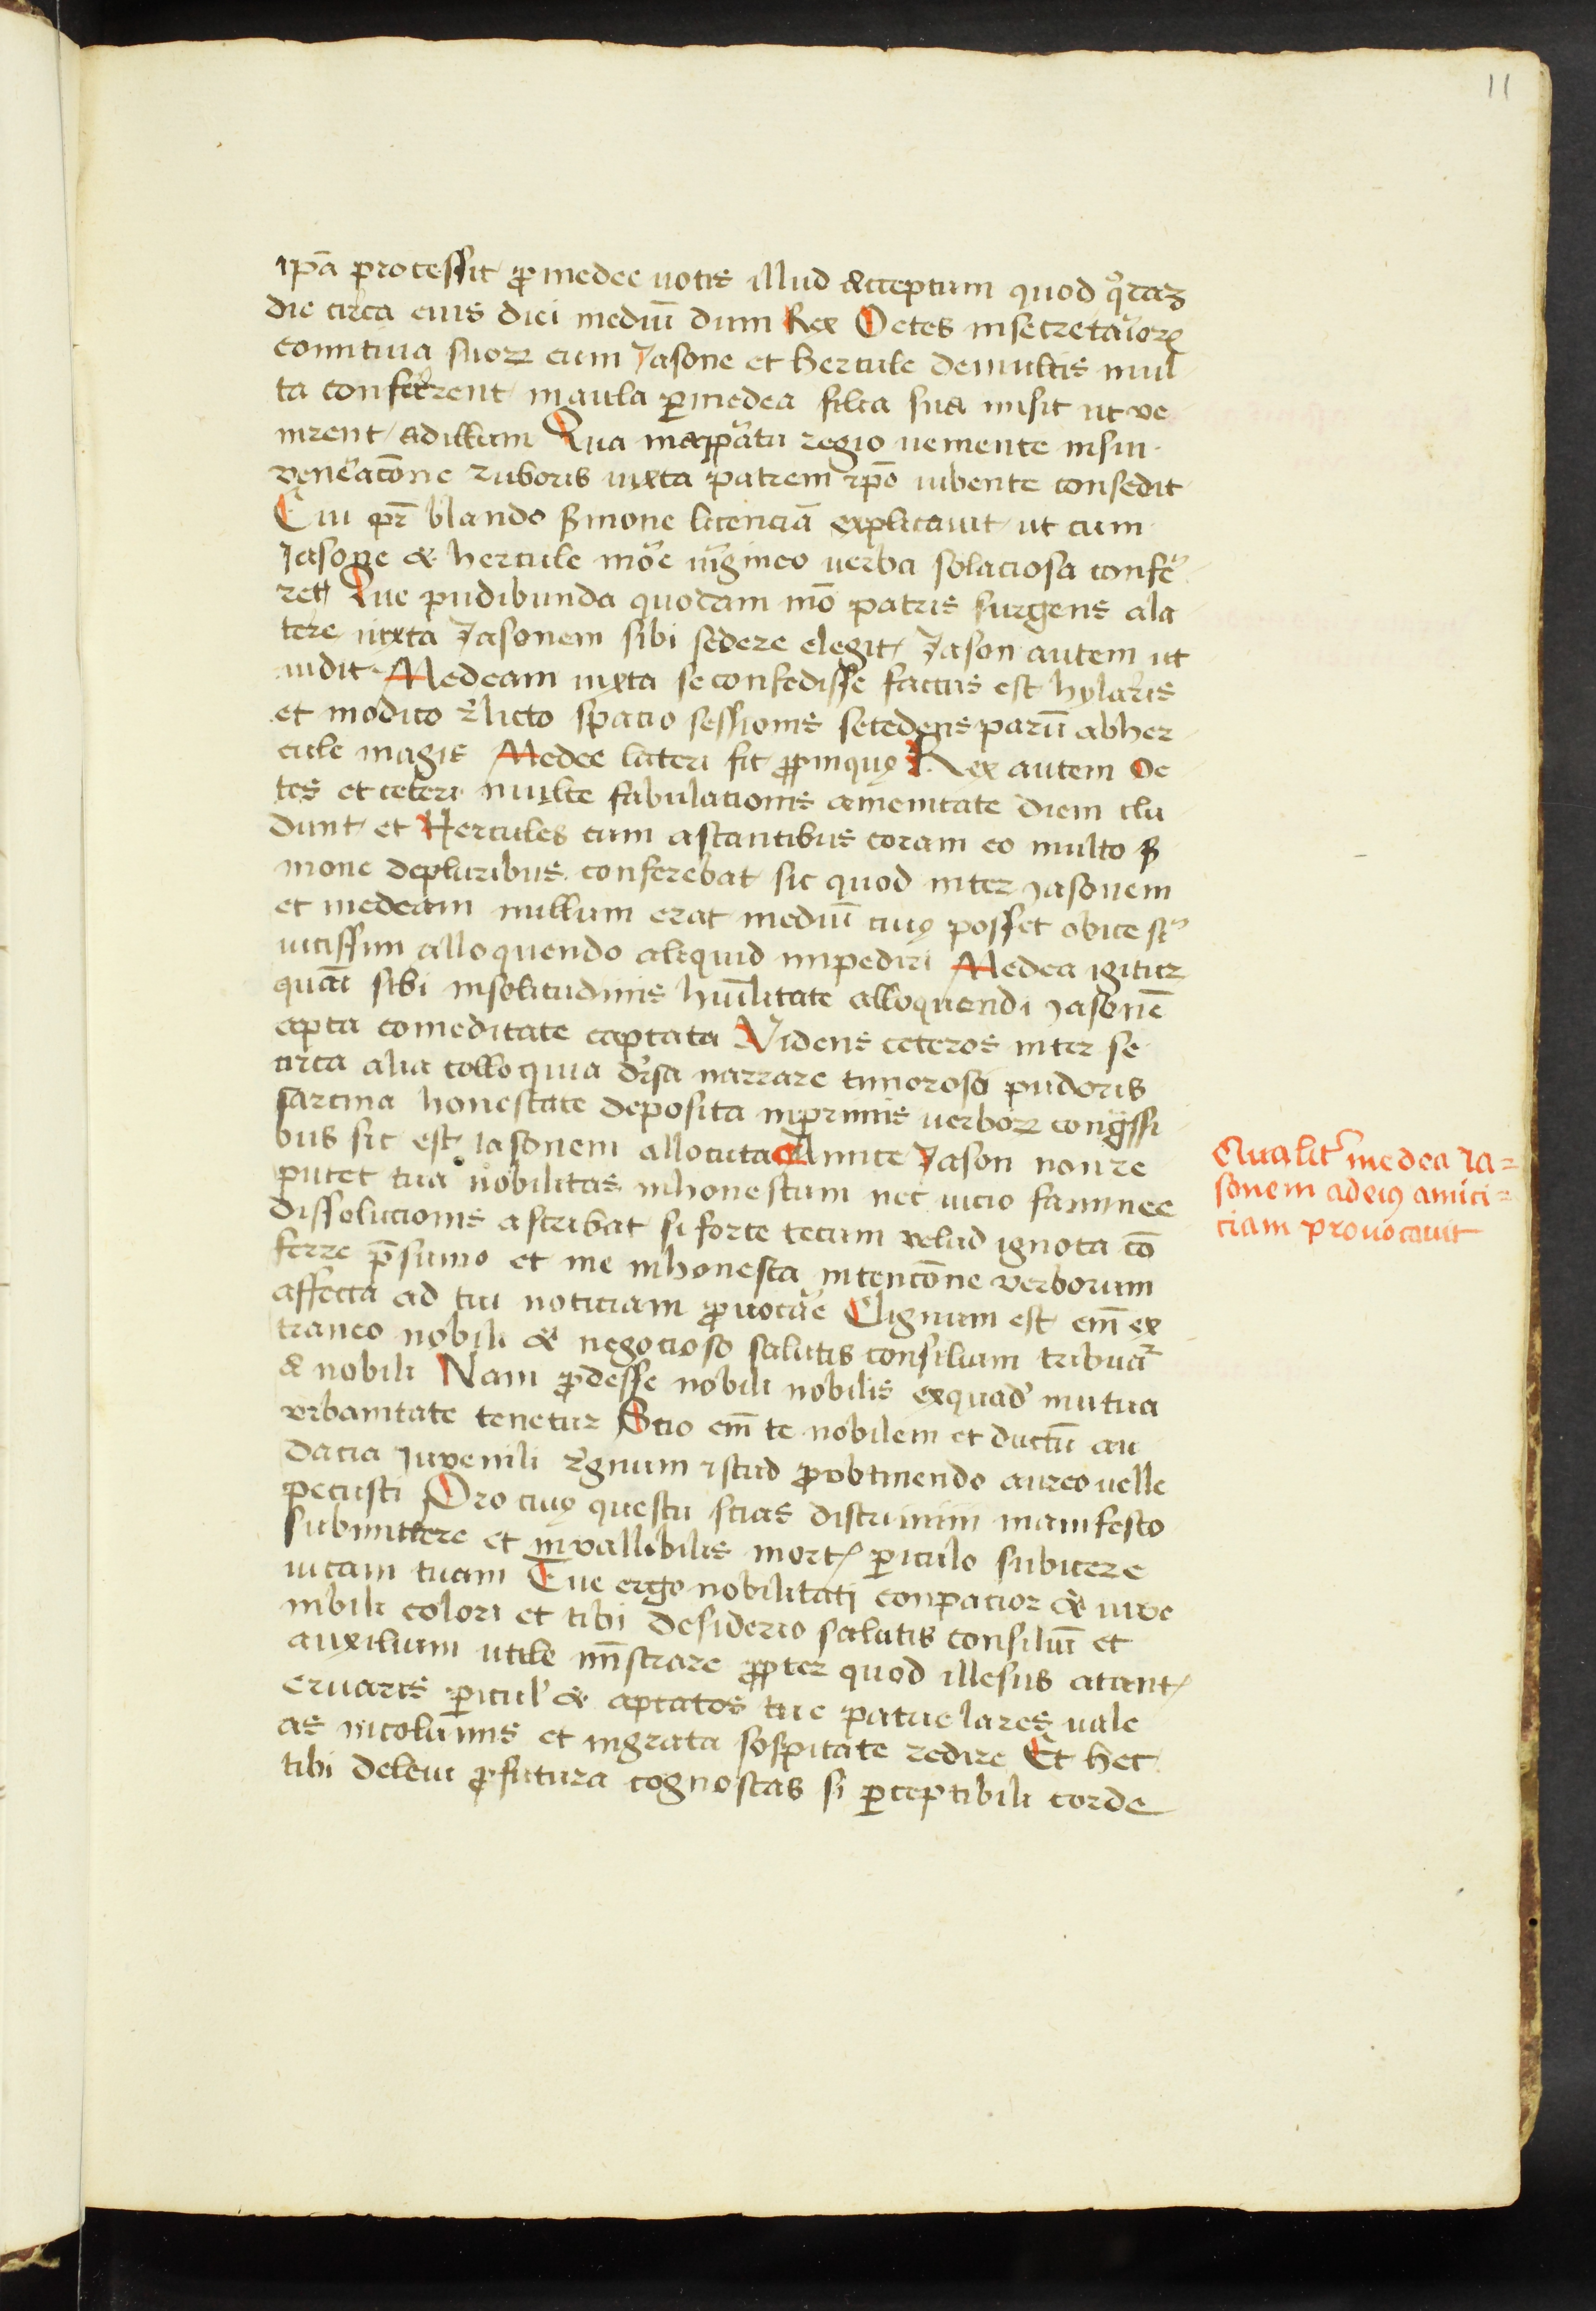 11
ipā processit ꝓ medee votis illud acceptum quod qͦdaꝫ
die circa eius diei mediū dum Rex Oetes in secretarioꝝ
comitiua suoꝝ cum Jasone et hercule de multis mul
ta conferrent in aula ꝑ medea filia sua misit ut ve
nirent ad illum Qua in apꝑatu regio veniente in sui
veneracōne ruboris iuxta patrem ip̄o iubente consedit
Cui pr̄ blando ẜmone licenciā explicauit ut cum
Jasone & hercule more virgineo verba solaciosa confe
ret Que pudibunda quodam mō patris surgens a la
tere iuxta Jasonem sibi sedere elegit Jason autem ut
uidit Medeam iuxta se consedisse factus est hylaris
et modico relicto spacio sessionis secedens parū ab her
cule magis Medee lateri fit ꝓpinquꝯ Rex autem Oe
tes et ceteri multe fabulacionis amenitate diem clu
dunt et Hercules cum astantibus coram eo multo ẜ
mone de pluribus conferebat sic quod inter Jasonem
et medeam nullum erat mediū cuiꝯ posset obice si
uicissim alloquendo aliquid impediri Medea igitur
quāi sibi in solitudinis humilitate alloquendi Jasonē
apta comeditate captata Videns ceteros inter se
circa alia colloquia diuersa narrare timorosa pudoris
sarcina honestate deposita in primis verboꝝ congressi
bus sic est Jasonem allocuta Amice Jason non re
putet tua nobilitas inhonestum nec vicio faminee
dissolucionis ascribat si forte tecum velud ignota cō
ferre p̄sumo et me inhonesta intencōne verborum
affecta ad tui noticiam ꝓuocare Dignum est em̄ ex
traneo nobili & negocioso salutis consilium tribuat̄
a nobili Nam ꝓdesse nobili nobilis ex quad' mutua
vrbanitate tenetur Scio em̄ te nobilem et ductū au
dacia Juvenili regnum istud ꝓ obtinendo aureo velle
pecusti Pro cuiꝯ questu scias discrimini manifesto
submittere et in vallibilis mortꝭ ꝑiculo subicere
uitam tuam Tue ergo nobilitati conpacior & iuve
nibili colori et tibi desidero salutis consiliū et
auxilium utile mīstrare ꝓpter quod illesus a tantꝭ
eruaris ꝑicul' & aptatos tue patrie lares uale
as incolumis et in grata sospitate redire Et hec
tibi de leui ꝓfutura cognoscas si ꝑceptibili corde
Qualit̄ medea Ja=
sonem ad eiꝯ amici=
ciam prouocauit